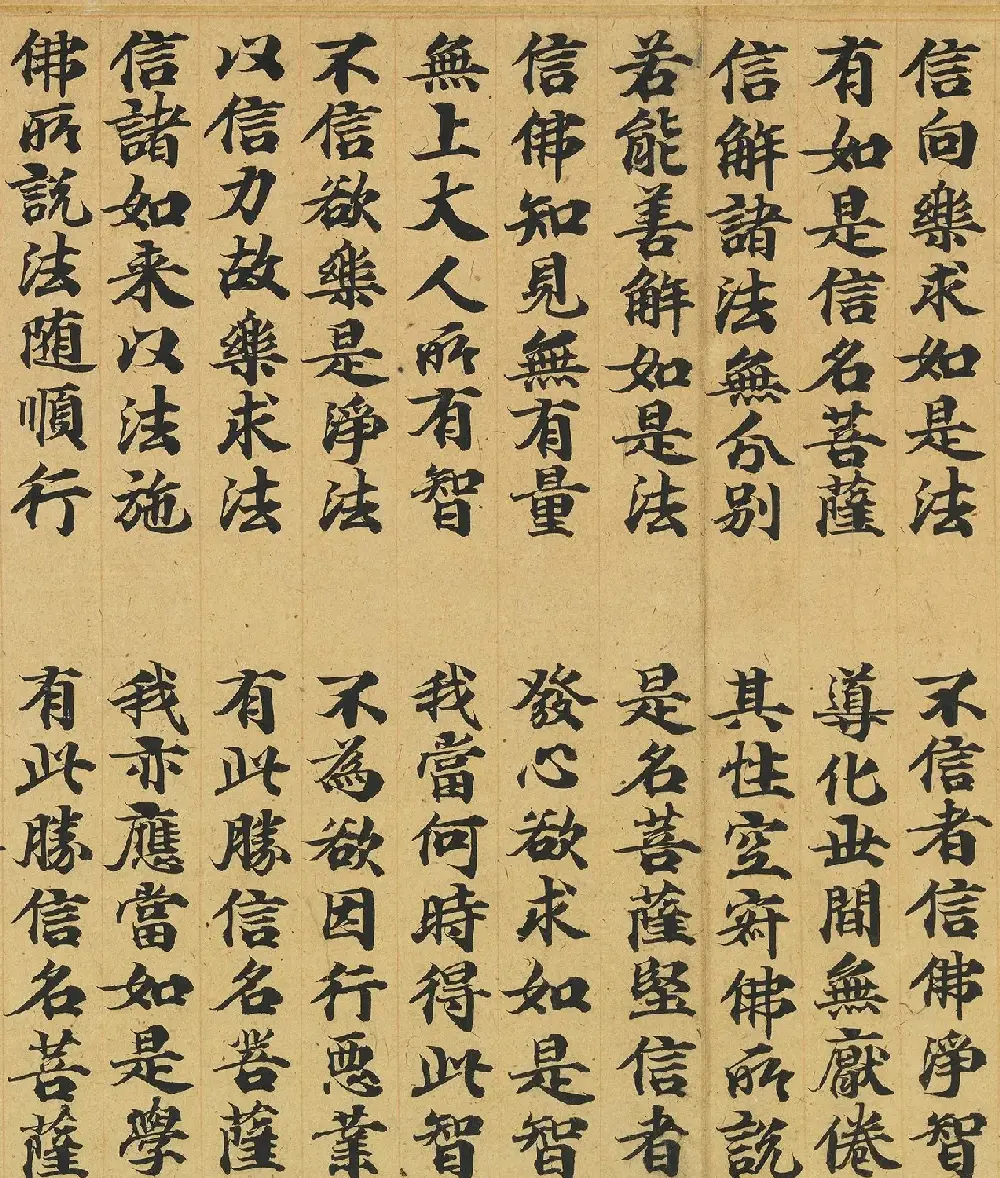 信向樂求如是法　不信者信佛淨智
有如是信名菩薩　導化世間無厭倦
信解諸法無分別　其性空寂佛所說
若能善解如是法　是名菩薩堅信者
信佛知見無有量　發心欲求如是智
無上大人所有智　我當何時得此智
不信欲樂是淨法　不為欲因行惡業
以信力故樂求法　有此勝信名菩薩
信諸如来以法施　我亦應當如是學
佛所說法随順行　有此勝信名菩薩